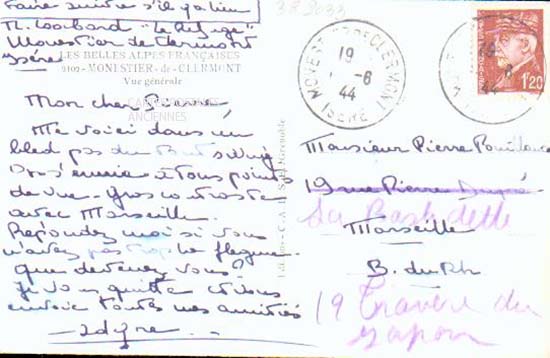 Faire suivre s'il y a lieu
38 2033
"Le Refuge"
Monestier de Clermont
Isère
LES BELLES ALPES FRANÇAISES
9109 - MONESTIER-de-CLERMONT
Vue générale
CARTES
ANCIENNES
Mon cher Pierre,
Me voici dans un
bled pas du tout
On s'ennuie à tous points
de vue - Gros contraste
avec Marseille.
Répondez moi si vous
n'avez pas trop la flegme.
que devenez vous?
Je vous quitte et vous
envoie toutes mes amitiés
Grenoble
CLERMONT
19
-6
44
ISERE
1F20
44
Monsieur Pierre
19 rue Pierre Dupré
La Bastidette
Marseille
B. du Rh
19 Traverse du
Japon